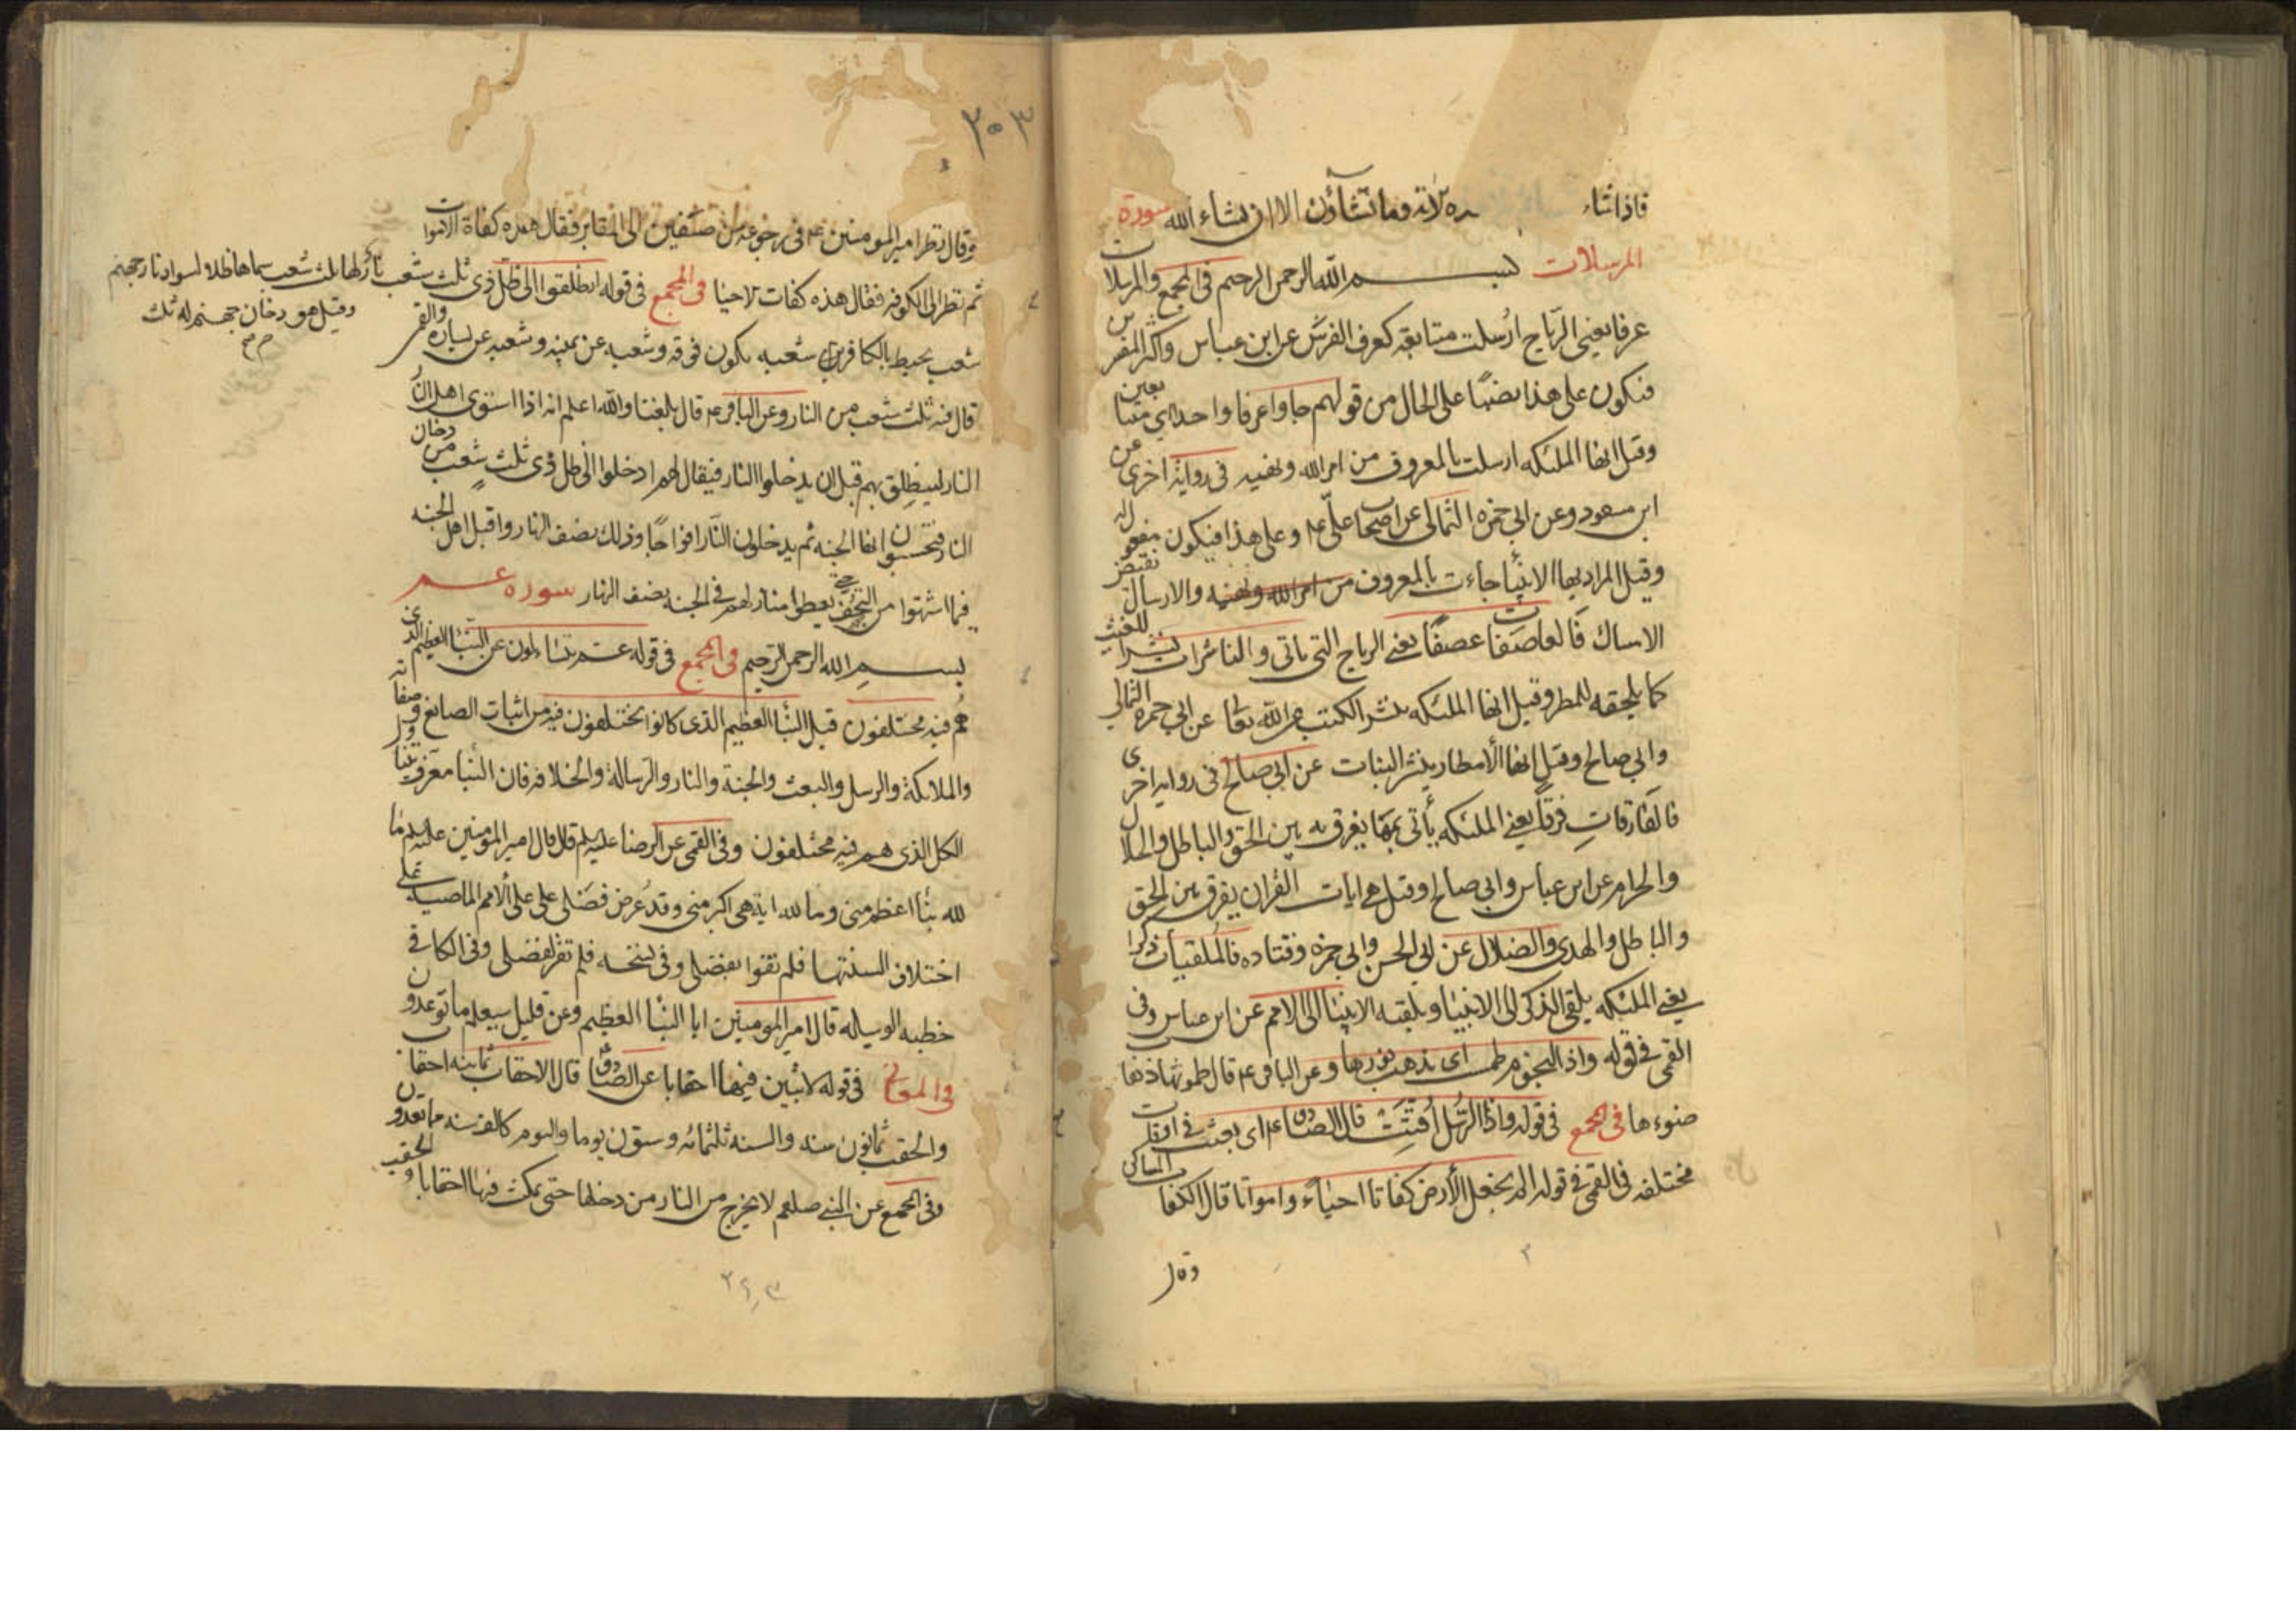 فاذا شاء شاؤا وما تشاؤن الا ان يشاء الله سورة
المرسلات بسم الله الرحمن الرحيم في المجمع والمرسلات
عرفا يعني الرياح ارسلت متتابعة كعرف الفرس عن ابن عباس واكثر المفسرين
فيكون على هذا نصبًا على الحال من قولهم جاوا عرفا واحدا اي متتابعين
وقيل انها الملئكه ارسلت بالمعروف من امر الله ونهيه في رواية اخرى عن
ابن مسعود وعن ابي حمزه الثمالي عن اصحاب علي ع م وعلى هذا فيكون مفعولا له
وقيل المراد بها الانبيا جاءت بالمعروف من امر الله ونهيه والارسال نقيض
الامساك فالعاصفات عصفًا يعني الرياح التي ياتي والناشرات نشرا للغيث
كما يلحقه للمطر وقيل انها الملئكه ينشر الكتب من الله تعا عن ابي حمزه الثمالي
وابي صالح وقيل انها الأمطار ينشر النبات عن ابي صالح في روايه اخرى
فالفارقاتِ فرقًا يعني الملئكه يأتي بما يفرق به بين الحق والباطل والحلال
والحرام عن ابن عباس وابي صالح وقيل هي ايات القرآن يفرق بين الحق
والباطل والهدى والضلال عن ابي الحسن وابي حمزه وقتاده فالملقيات ذكرا
يعني الملئكه يلقي الذكر الى الانبيا ويلقيه الانبيا الى الامم عن ابن عباس وفي
القمي في قوله واذا النجوم طمست اي يذهب نورها وعن الباقر ع م قال طموسها ذهاب
ضوءها في المجمع في قوله واذا الرسُل اُقتَت قال الصادق ع م اي بعثت في اوقات
مختلفه في القمي في قوله الم نجعل الأرض كفاتا احياء وامواتا قال الكفات المساكن
وقال
٣٠٣
وقال نظر امير المومنين ع م في رجوعه من صفين الى المقابر فقال هذه كفاة الاموات
ثم نظر الى الكوفه فقال هذه كفات الاحيا في المجمع في قوله انطلقوا الى ظل ذي ثلث شعب
شعب يحيط بالكافرين شعبه يكون فوقه وشعبه عن يمينه وشعبه عن يساره والقمي
قال فيه ثلث شعب من النار وعن الباقر ع م قال بلغنا والله اعلم انه اذا استوى اهل النار
النار لينطلق بهم قبل ان يدخلوا النار فيقال لهم ادخلوا الى ظل ذي ثلث شعب من دخان
النار فيحسبون انها الجنه ثم يدخلون النار افواجًا وذلك نصف النهار واقبل اهل الجنه
فيما اشتهوا من التحف حتى يعطوا منازلهم في الجنه نصف النهار سوره عم
بسم الله الرحمن الرحيم في المجمع في قوله عم يتساءلون عن النبأ العظيم الذي
هُم فيه مختلفون قيل النبأ العظيم الذي كانوا يختلفون فيه من اثبات الصانع وصفاته
والملائكة والرسل والبعث والجنة والنار والرسالة والخلافه فان النبأ معرف يتناول
الكل الذي هم فيه مختلفون وفي القمي عن الرضا عليه السلم قال قال امير المؤمنين عليه السلم ما
لله نبأ اعظم مني وما لله اية هي اكبر مني وقد عُرض فضلي على الأمم الماضيه على
اختلاف السنتها فلم تقروا بفضلي وفي نسخه فلم تقر لفضلي وفي الكافي في
خطبه الوسيله قال امير المومنين انا النبأ العظيم وعن قليل سيعلم ما توعدون
وفي المعاني في قوله لابثين فيها احقابا عن الصادق ع قال الاحقاب ثمانيه احقاب
والحقب ثمانون سنه والسنه ثلثمائه وستون يوما واليوم كالف سنه مما تعدون
وفي المجمع عن النبي صلعم لا يخرج من النار من دخلها حتى يمكث فيها احقابا والحقب
وقيل هو دخان جهنم له ثلث